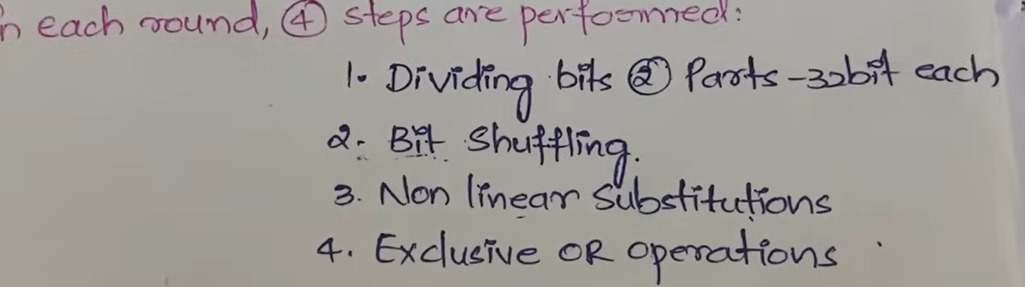 n each round, ④ steps are performed:
1. Dividing bits ② Parts - 32bit each
2. Bit Shuffling.
3. Non linear Substitutions
4. Exclusive OR operations